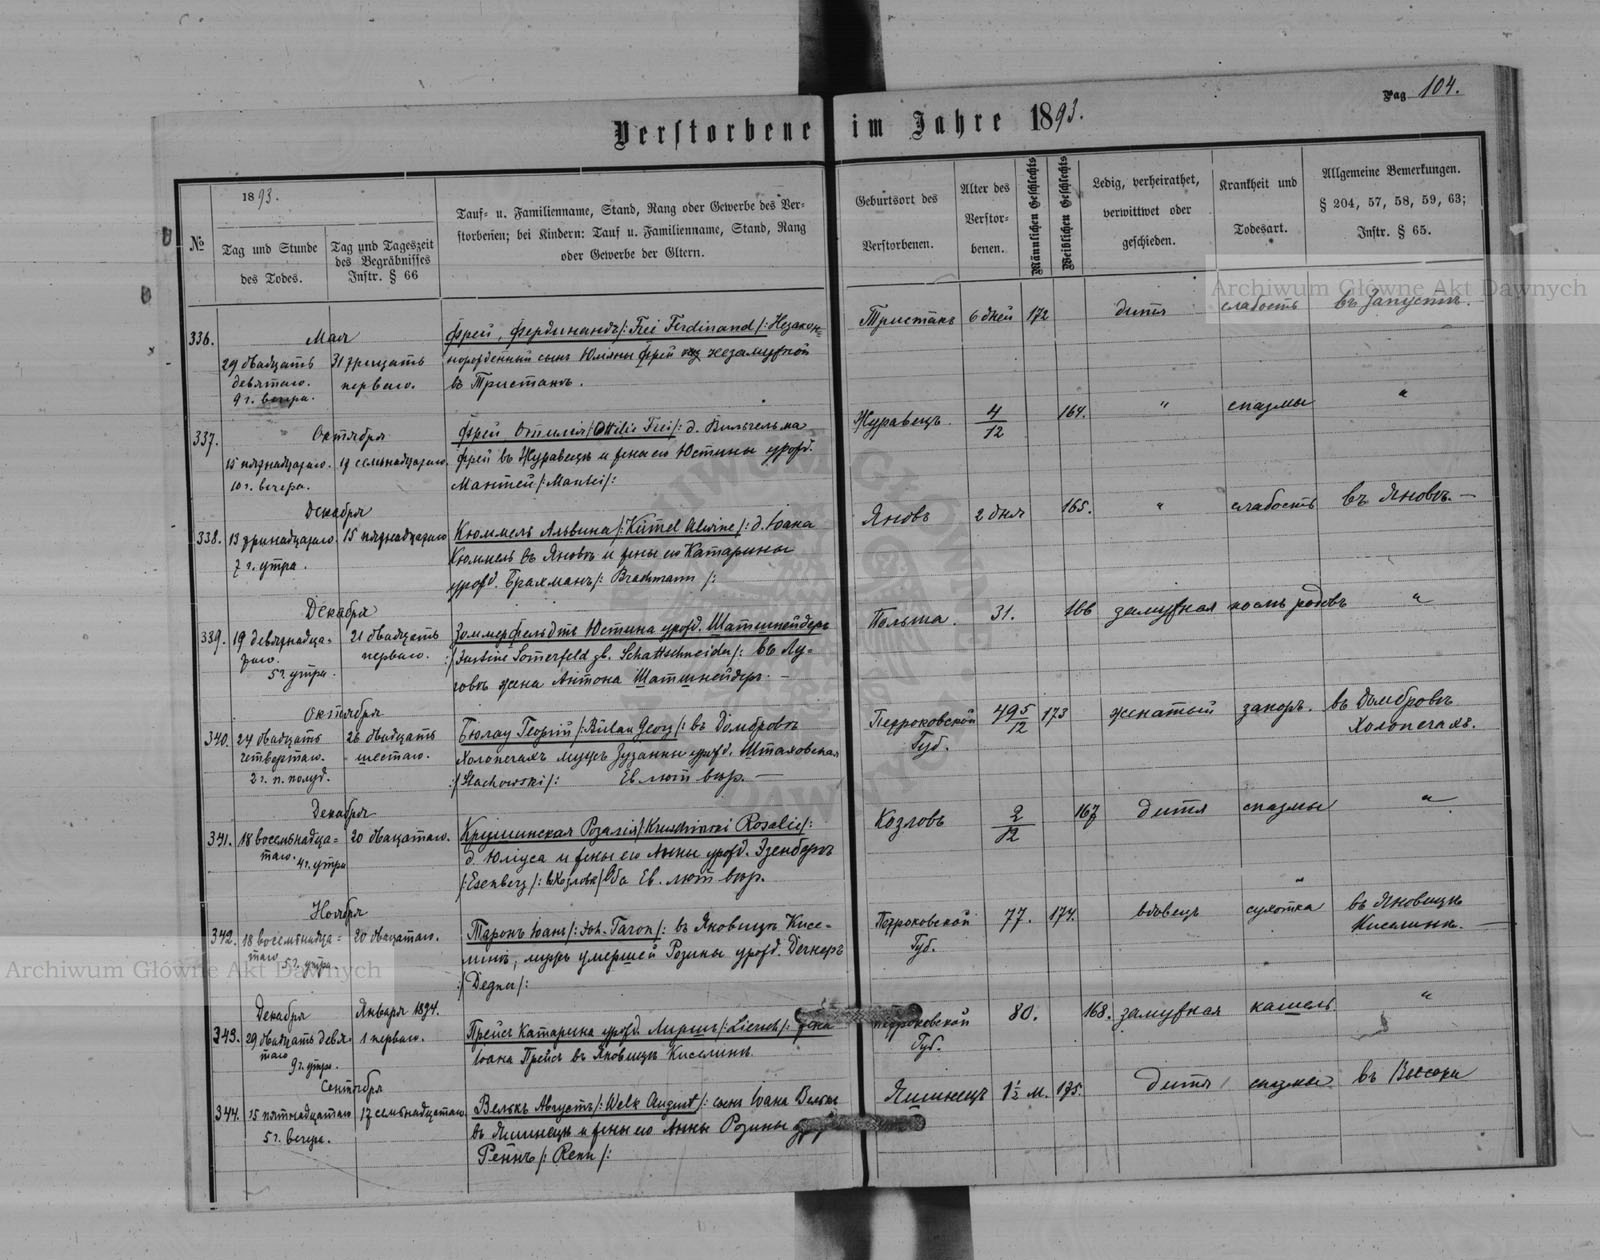 Pag 104.
Verstorbene im Jahre 1893.
№
1893.
Tag und Stunde
des Todes.
Tag und Tageszeit
des Begräbnisses
Instr. § 66
Tauf- u. Familienname, Stand, Rang oder Gewerbe des Ver-
storbenen; bei Kindern: Tauf u. Familienname, Stand, Rang
oder Gewerbe der Eltern.
Geburtsort des
Verstorbenen.
Alter des
Verstor-
benen.
Männlichen Geschlechts
Weiblichen Geschlechts
Ledig, verheirathet,
verwittwet oder
geschieden.
Krankheit und
Todesart.
Allgemeine Bemerkungen.
§ 204, 57, 58, 59, 63;
Instr. § 65.
Archiwum Główne Akt Dawnych
336.
Мая
29 двадцать
девятаго.
9 г. вечера.
31 тридцать
перваго.
Фрей, Фердинандъ /: Frei Ferdinand /: Незакон=
норожденный сынъ Юлiяны Фрей незамужной
въ Тристанъ.
Тристанъ 6 дней 172 дитя слабость въ Запустъ.
337.
Октября
15 пятнадцатаго.
10 г. вечера.
17 семьнадцатаго.
Фрей Отилiя /: Ottilie Frei /: д. Вильгельма
Фрей въ Журавецъ и жены его Юстины урожд.
Мантей /: Mantei /:
Журавецъ 4/12 164. " спазмы "
338.
Декабря
13 тринадцатаго
7 г. утра.
15 пятнадцатаго
Кюммель Альвина /: Kümel Alwine /: д. Iоана
Кюммель въ Яновъ и жены его Катарины
урожд. Брахманъ /: Brachmann /:
Яновъ 2 дня 165. " слабость въ Яновъ. —
339.
Декабря
19 девятнадца=
таго.
5 г. утра.
21 двадцать
перваго.
Зоммерфельдтъ Юстина урожд. Шатшнейдеръ
:/ Justine Somerfeld gb. Schattschneider /: въ Лу=
говъ жена Антона Шатшнейдеръ. —
Польша. 31. 166 замужная послъ родовъ "
340.
Октября
24 двадцать
четвертаго.
2 г. п. полуд.
26 двадцать
шестаго.
Бюлау Георгiй /: Bülau Georg /: въ Домбровъ
Холопечахъ мужъ Зузанны урожд. Штаховская
:/ Stachowski /: Ев. лют. вър. —
Петроковской
Губ.
49 5/12 173 женатый запоръ. въ Домбровъ
Холопечахъ.
341.
Декабря
18 восемьнадца=
таго.
4 г. утра
20 двадцатаго.
Крушинская Розалiя /: Kruschinski Rosalie /:
д. Юлiуса и жены его Анны урожд. Эзенбергъ
/: Esenberg /: въ Козловъ / Оба Ев. лют. вър.
Козловъ 2/12 167 дитя спазмы "
342.
Ноября
18 восемьнадца=
таго
5 г. утра.
20 двадцатаго.
Таронъ Iоанъ /: Joh. Taron /: въ Яновицъ Кисе-
линъ, мужъ умершей Розины урожд. Дегнеръ
:/ Degner /:
Петроковской
Губ.
77. 174. вдовецъ сухотка въ Яновицъ
Киселинъ. —
Archiwum Główne Akt Dawnych
343.
Декабря
29 двадцать девя-
таго
9 г. утра.
Января 1894.
1 перваго.
Прейсъ Катарина урожд. Лиршъ /: Liersch /: жена
Iоана Прейсъ въ Яновицъ Киселинъ.
Петроковской
Губ.
80. 168. замужная кашель. "
344.
Сентября
15 пятнадцатаго
5 г. вечера.
17 семьнадцатаго.
Велькъ Августъ /: Welk August /: сынъ Iоана Велькъ
въ Яшинецъ и жены его Анны Розины
Реннъ /: Renn /:
Яшинецъ 1½ м. 175. дитя спазмы въ Высока